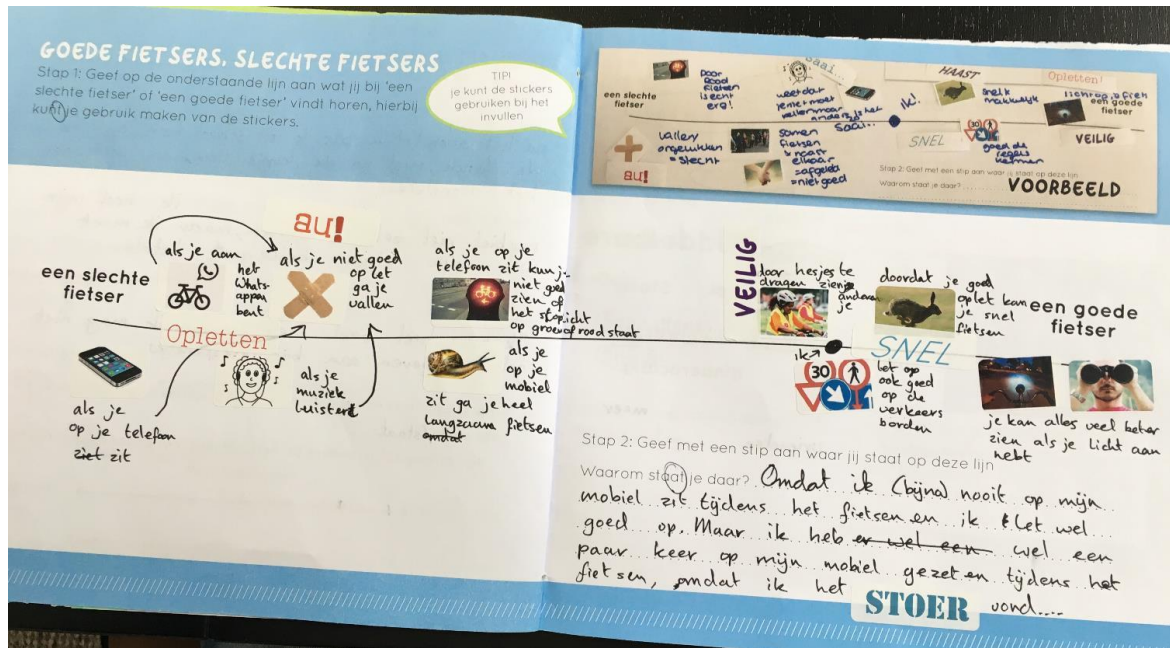 GOEDE FIETSERS, SLECHTE FIETSERS
Stap 1: Geef op de onderstaande lijn aan wat jij bij 'een
slechte fietser' of 'een goede fietser' vindt horen, hierbij
kunt je gebruik maken van de stickers.
TIP!
je kunt de stickers
gebruiken bij het
invullen
een slechte
fietser
Door
Rood
fietsen
is echt
erg!
Saai...
weet dat
je niet moet
maar
anders is het
saai...
ik!
HAAST
snel &
makkelijk
Opletten!
licht op, &
een goede
fietser
vallen/
ongelukken
= slecht
au!
samen
fietsen
& naast
elkaar
= afgeleid
= niet goed
SNEL
goed de
regels
kennen
VEILIG
Stap 2: Geef met een stip aan waar jij staat op deze lijn
Waarom sta je daar?
VOORBEELD
au!
een slechte
fietser
als je aan
het
Whats-
appen
bent
als je niet goed
op let
ga je
vallen
als je op je
telefoon zit kun je
niet goed
zien of
het stoplicht
op groen of rood staat
Opletten
als je
op je telefoon
ziet zit
als je
muziek
luistert
als je
op je
mobiel
zit ga je heel
langzaam fietsen
omdat
VEILIG
door hesjes te
dragen zien
anderen
je
doordat je goed
oplet kan
je snel
fietsen
een goede
fietser
ik
SNEL
30
let op
ook goed
op de
verkeers
borden
je kan alles veel beter
zien als je licht aan
hebt
Stap 2: Geef met een stip aan waar jij staat op deze lijn
Waarom staat je daar? Omdat ik (bijna) nooit op mijn
mobiel zit tijdens het fietsen en ik let wel
goed op. Maar ik heb er wel een wel een
paar keer op mijn mobiel gezeten tijdens het
fietsen, omdat ik het STOER vond....